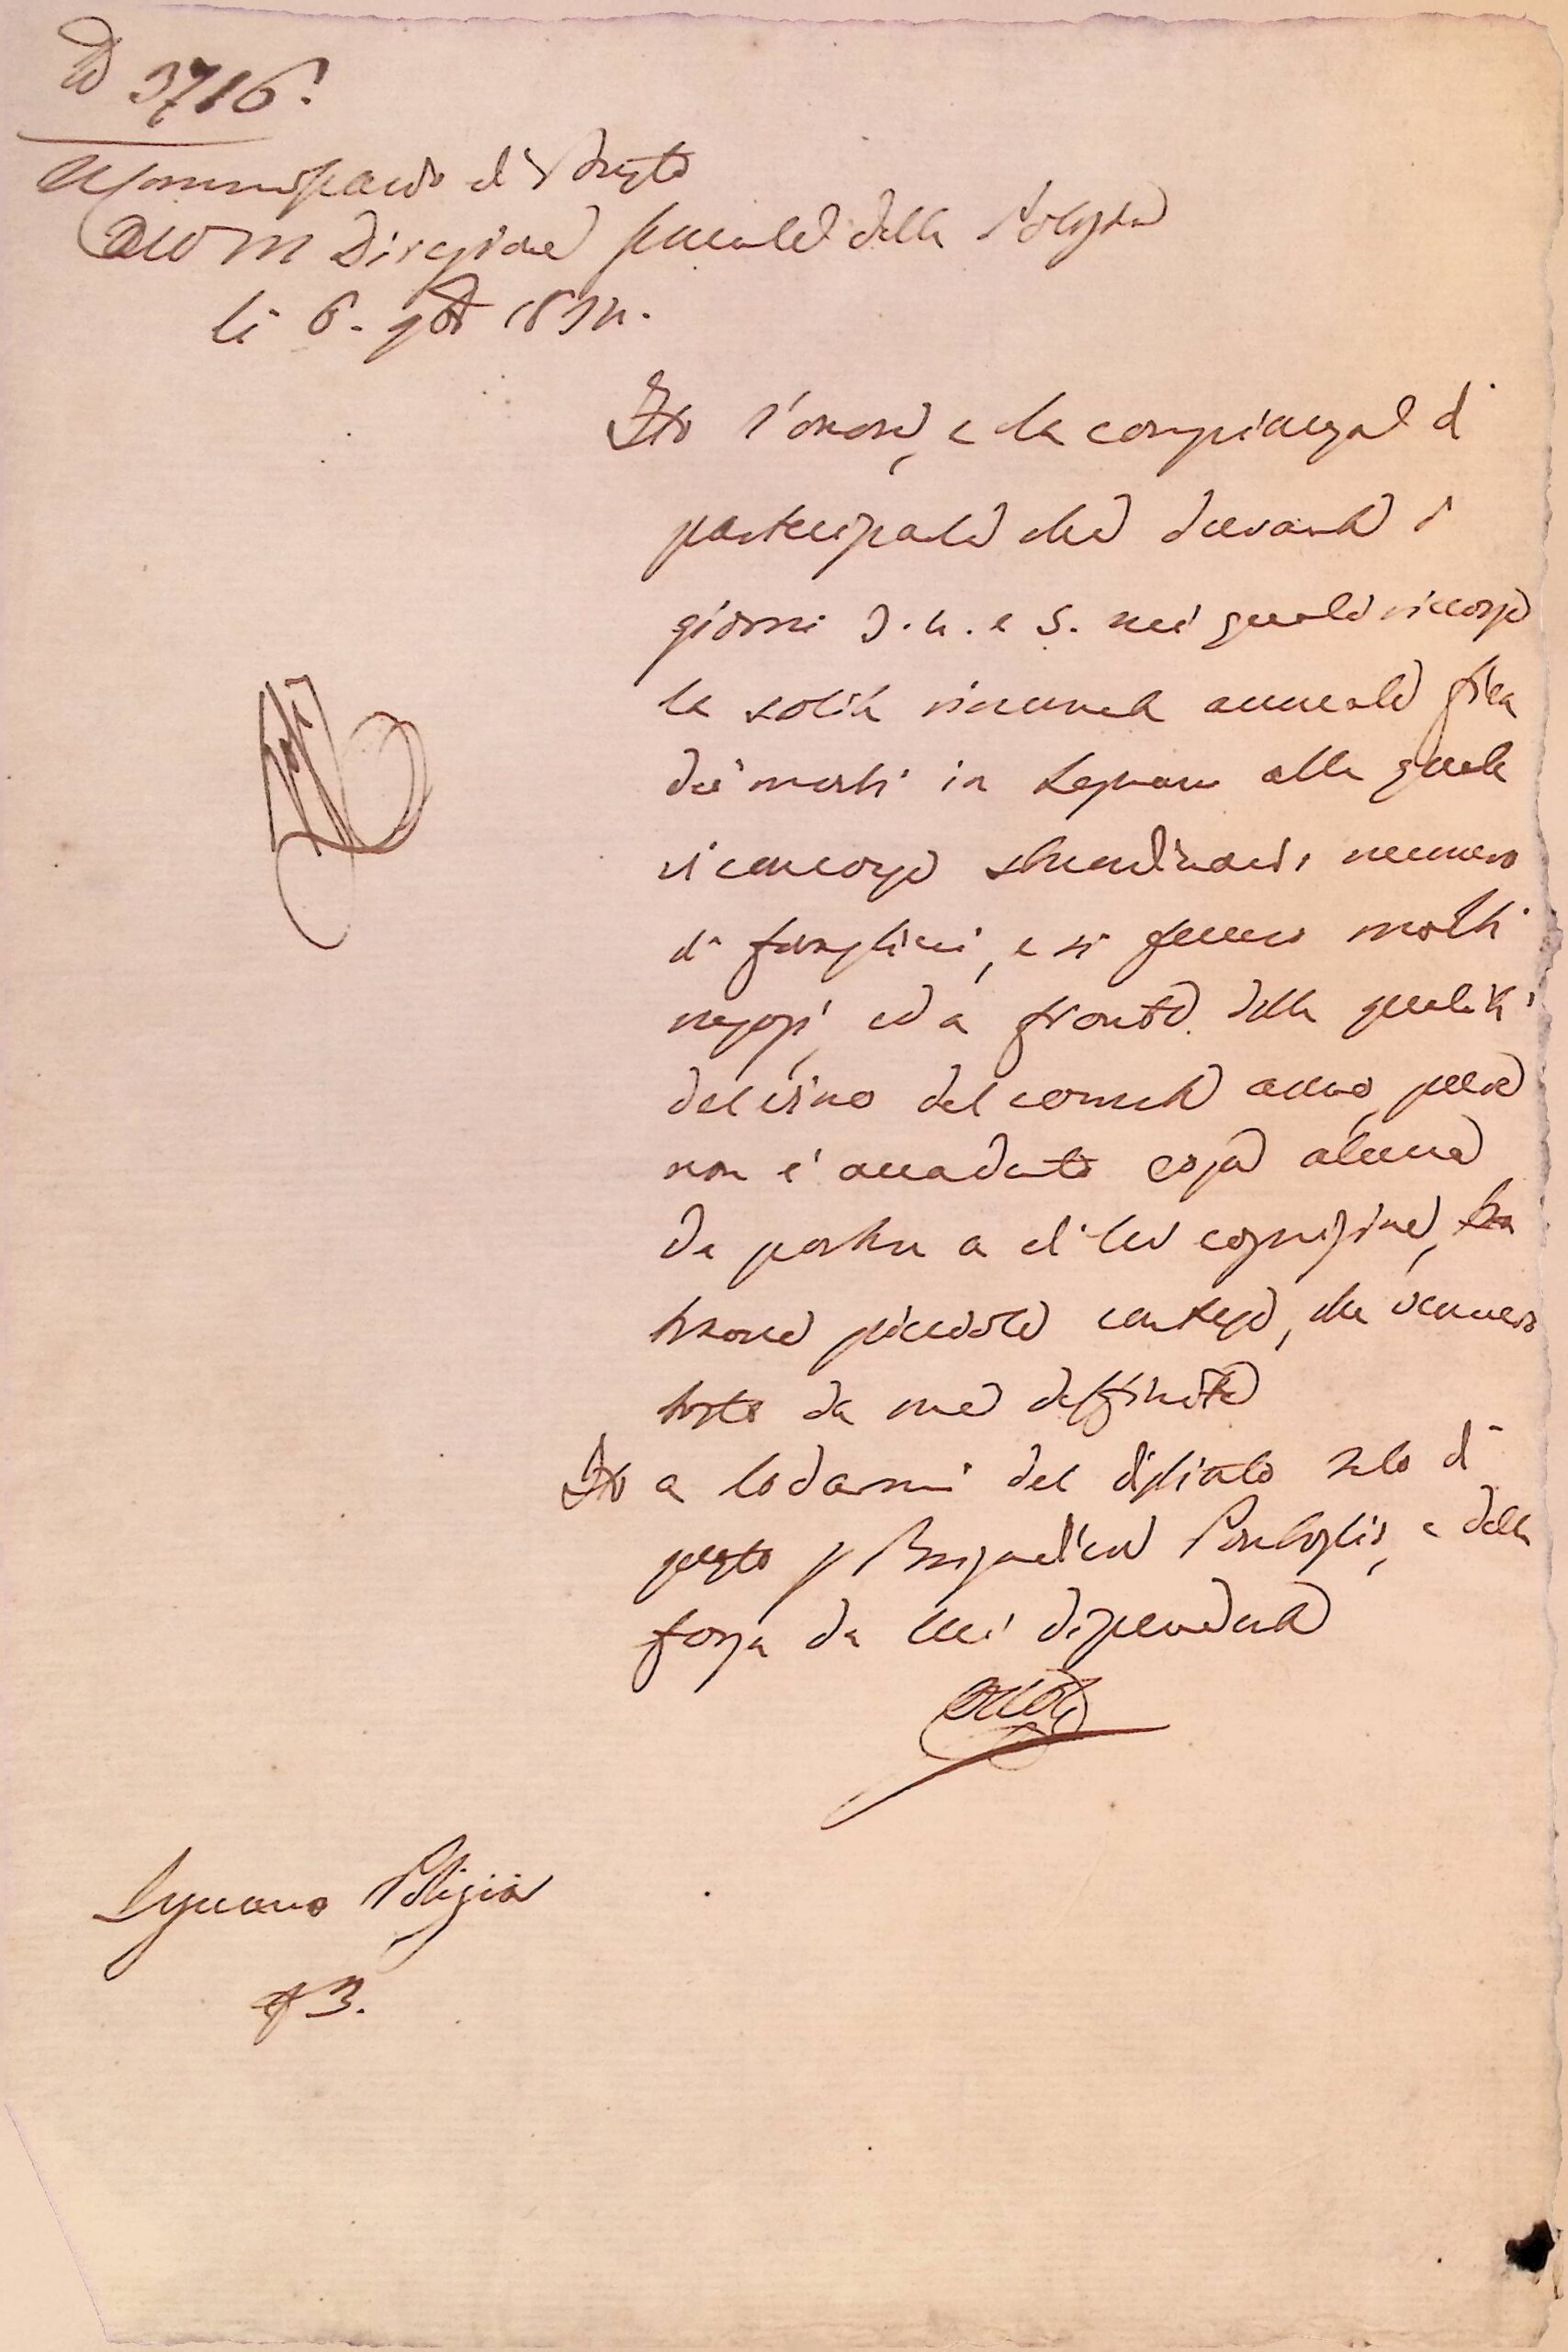 3716.
Commissario di
Direzione Generale della Polizia
li 6. 9bre 1834.
Ho l'onore, e la compiacenza di
partecipare che durante i
giorni 3. 4. e 5. nei quali ricorse
la solita rinomata annuale fiera
dei morti in Lugano alla quale
vi concorse straordinario numero
di famiglie, e si fecero molti
negozi, ed a fronte della qualità
del vino del corrente anno, pure
non è accaduto cosa alcuna
da portare a di lei cognizione,
piccole contese, che vennero
tosto da me deffinite
Ho a lodarmi del distinto zelo di
questo Brigadiere e della
forza da lui dipendente
Lugano Polizia
3.